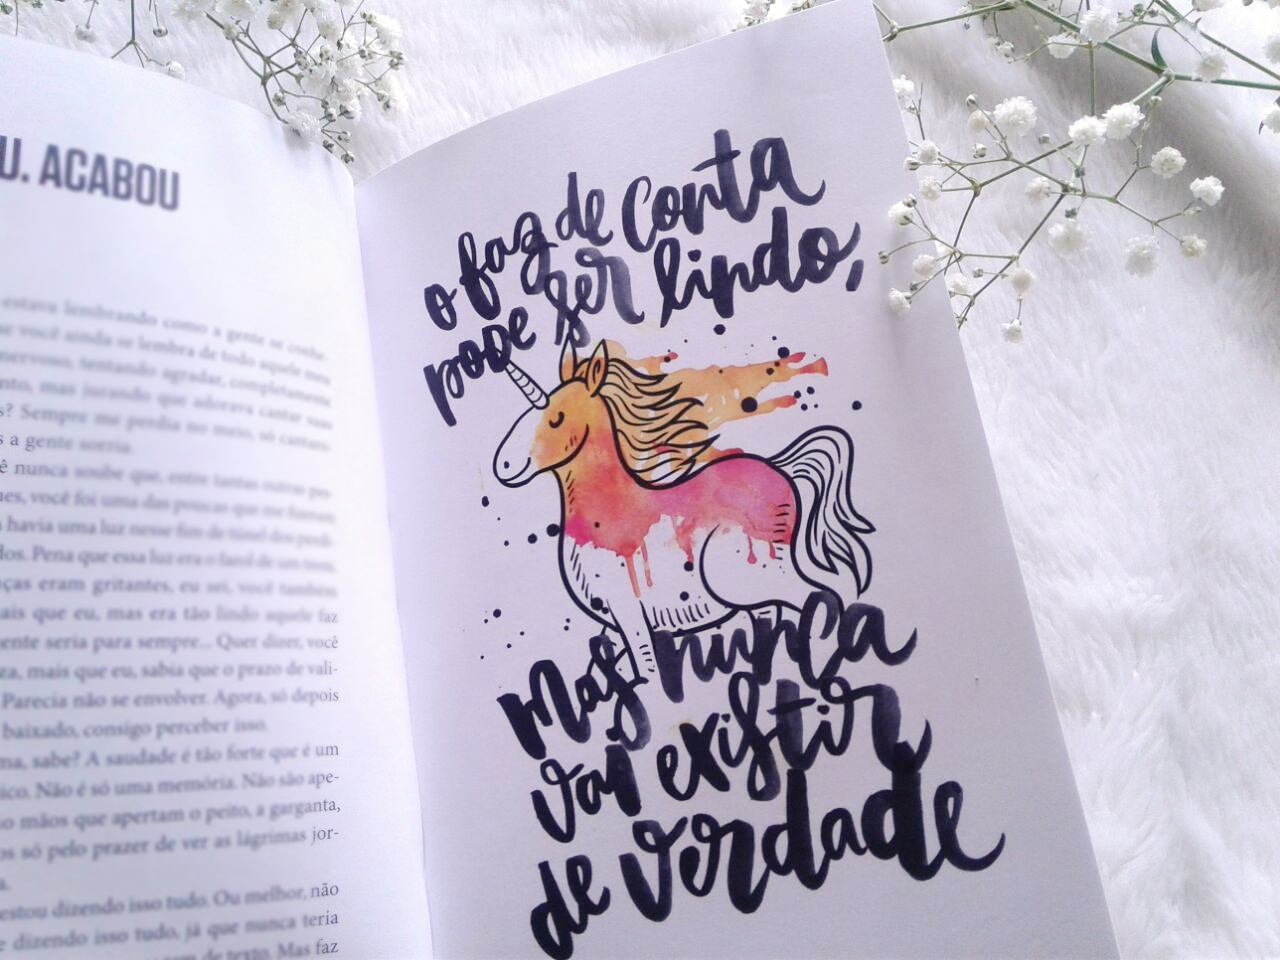 U. ACABOU
estava lembrando como a gente se conhe-
ue você ainda se lembra de todo aquele meu
nervoso, tentando agradar, completamente
nto, mas jurando que adorava cantar suas
s? Sempre me perdia no meio, só cantaro-
s a gente sorria.
ê nunca soube que, entre tantas outras pes-
ues, você foi uma das poucas que me fizeram
havia uma luz nesse fim de túnel dos perdi-
dos. Pena que essa luz era o farol de um trem.
ças eram gritantes, eu sei, você também
ais que eu, mas era tão lindo aquele faz
ente seria para sempre... Quer dizer, você
za, mais que eu, sabia que o prazo de vali-
Parecia não se envolver. Agora, só depois
baixado, consigo perceber isso.
ma, sabe? A saudade é tão forte que é um
ico. Não é só uma memória. Não são ape-
o mãos que apertam o peito, a garganta,
os só pelo prazer de ver as lágrimas jor-
a.
estou dizendo isso tudo. Ou melhor, não
e dizendo isso tudo, já que nunca teria
gem de texto. Mas faz
o faz de conta
pode ser lindo,
Mas nunca
vai existir
de verdade